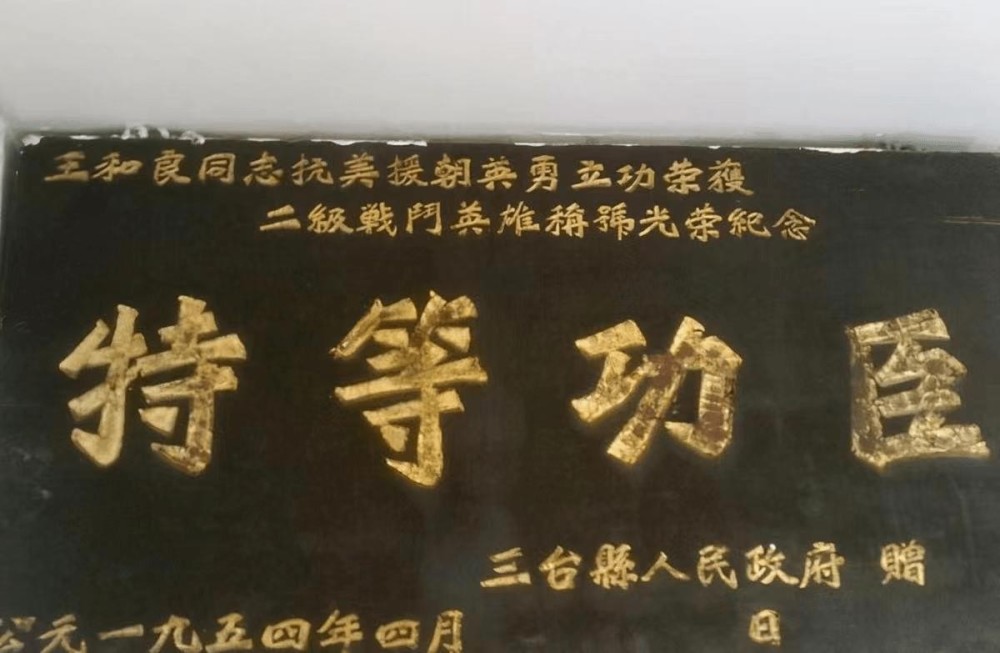 王和良同志抗美援朝英勇立功荣獲
二級戰鬥英雄稱號光荣紀念
特等功臣
三台縣人民政府 贈
公元一九五四年四月 日